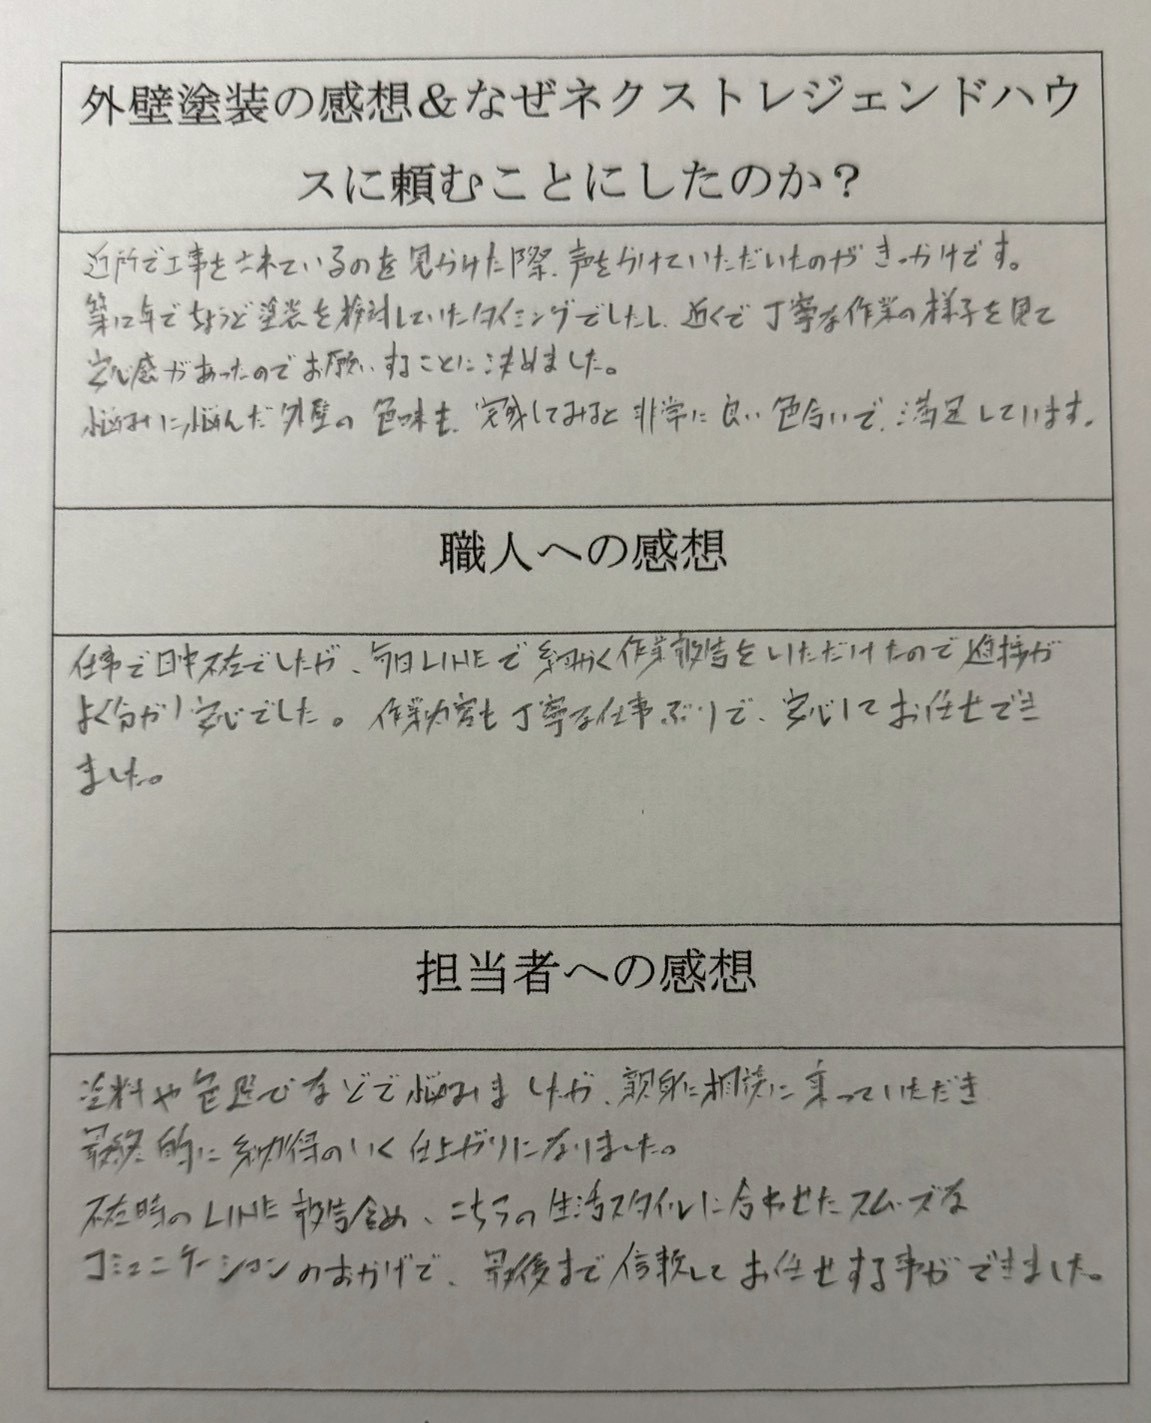 外壁塗装の感想&なぜネクストレジェンドハウ
スに頼むことにしたのか？
近所で工事をされているのを見かけた際、声をかけていただいたのがきっかけです。
築12年でちょうど塗装を検討していたタイミングでしたし、近くで丁寧な作業の様子を見て
安心感があったのでお願いすることに決めました。
悩みに悩んだ外壁の色味も、完成してみると非常に良い色合いで、満足しています。
職人への感想
仕事で日中不在でしたが、毎日LINEで細かく作業報告をいただけたので進捗が
よく分かり安心でした。作業内容も丁寧な仕事ぶりで、安心してお任せでき
ました。
担当者への感想
塗料や色選びなどで悩みましたが、親身に相談に乗っていただき
最終的に納得のいく仕上がりになりました。
不在時のLINE報告含め、こちらの生活スタイルに合わせたスムーズな
コミュニケーションのおかげで、最後まで信頼してお任せする事ができました。